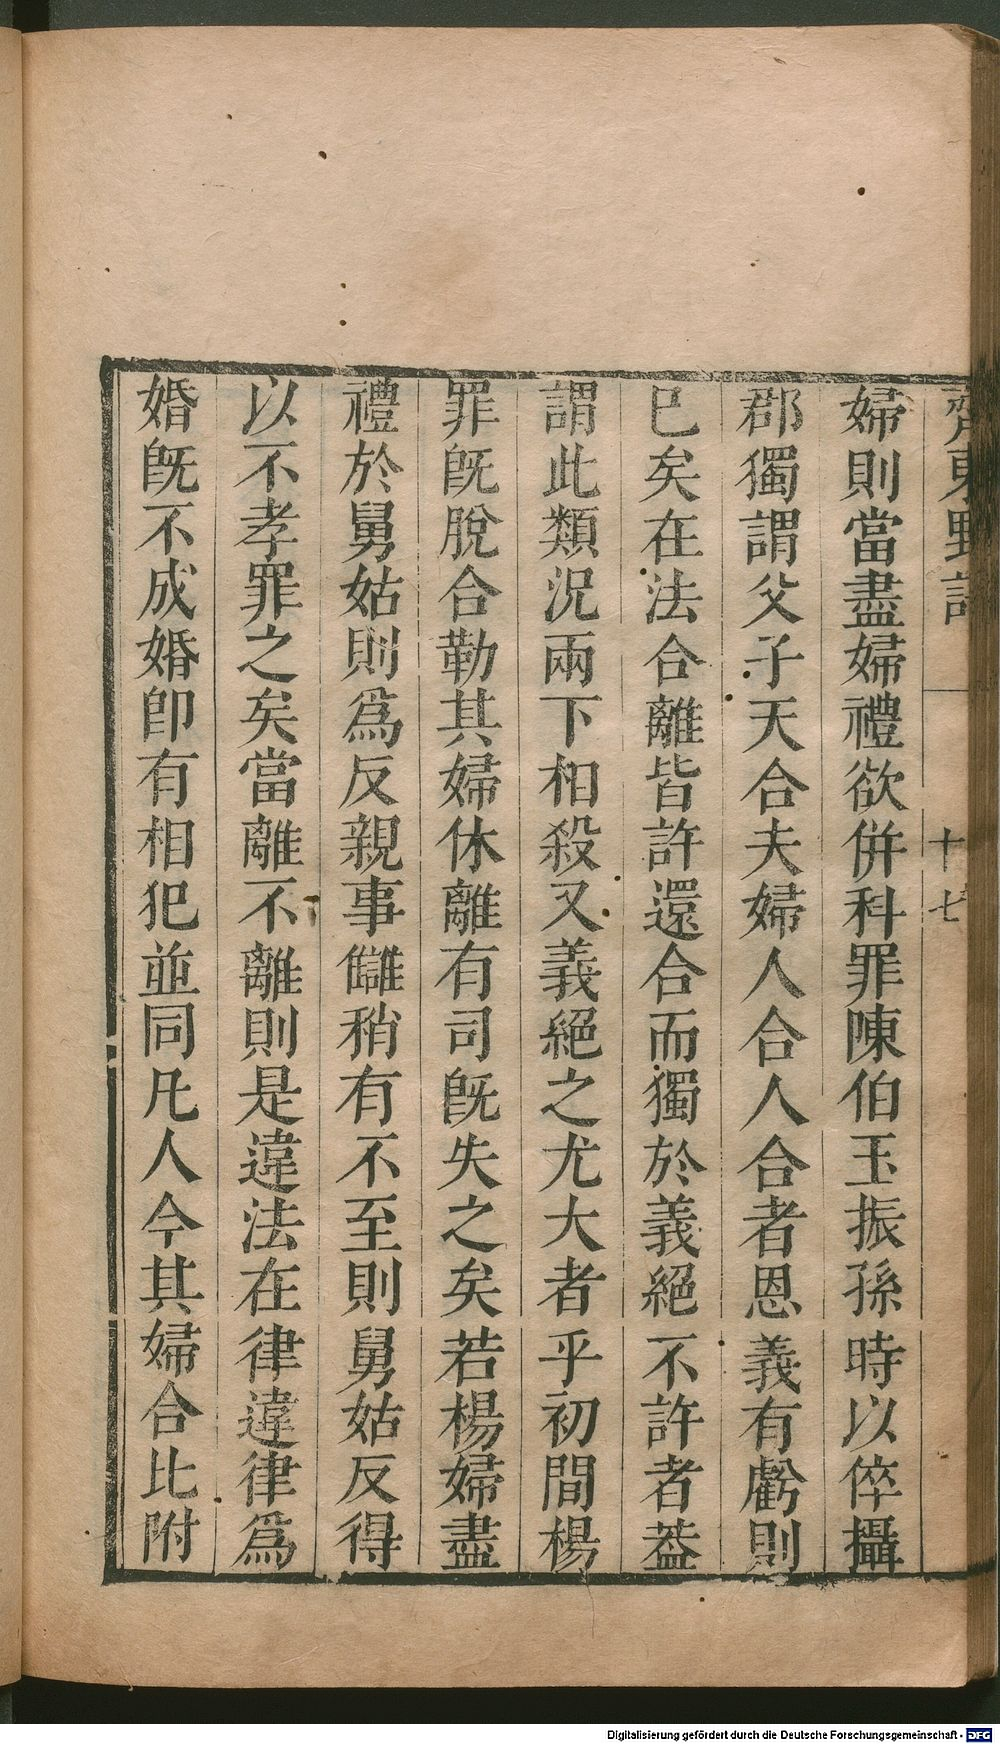 齊東野語
十七
婦則當盡婦禮欲併科罪陳伯玉振孫時以倅攝
郡獨謂父子天合夫婦人合人合者恩義有虧則
已矣在法合離皆許還合而獨於義絕不許者葢
謂此類況兩下相殺又義絕之尤大者乎初間楊
罪旣脫合勒其婦休離有司旣失之矣若楊婦盡
禮於舅姑則爲反親事讎稍有不至則舅姑反得
以不孝罪之矣當離不離則是違法在律違律爲
婚旣不成婚卽有相犯並同凡人今其婦合比附
Digitalisierung gefördert durch die Deutsche Forschungsgemeinschaft - DFG